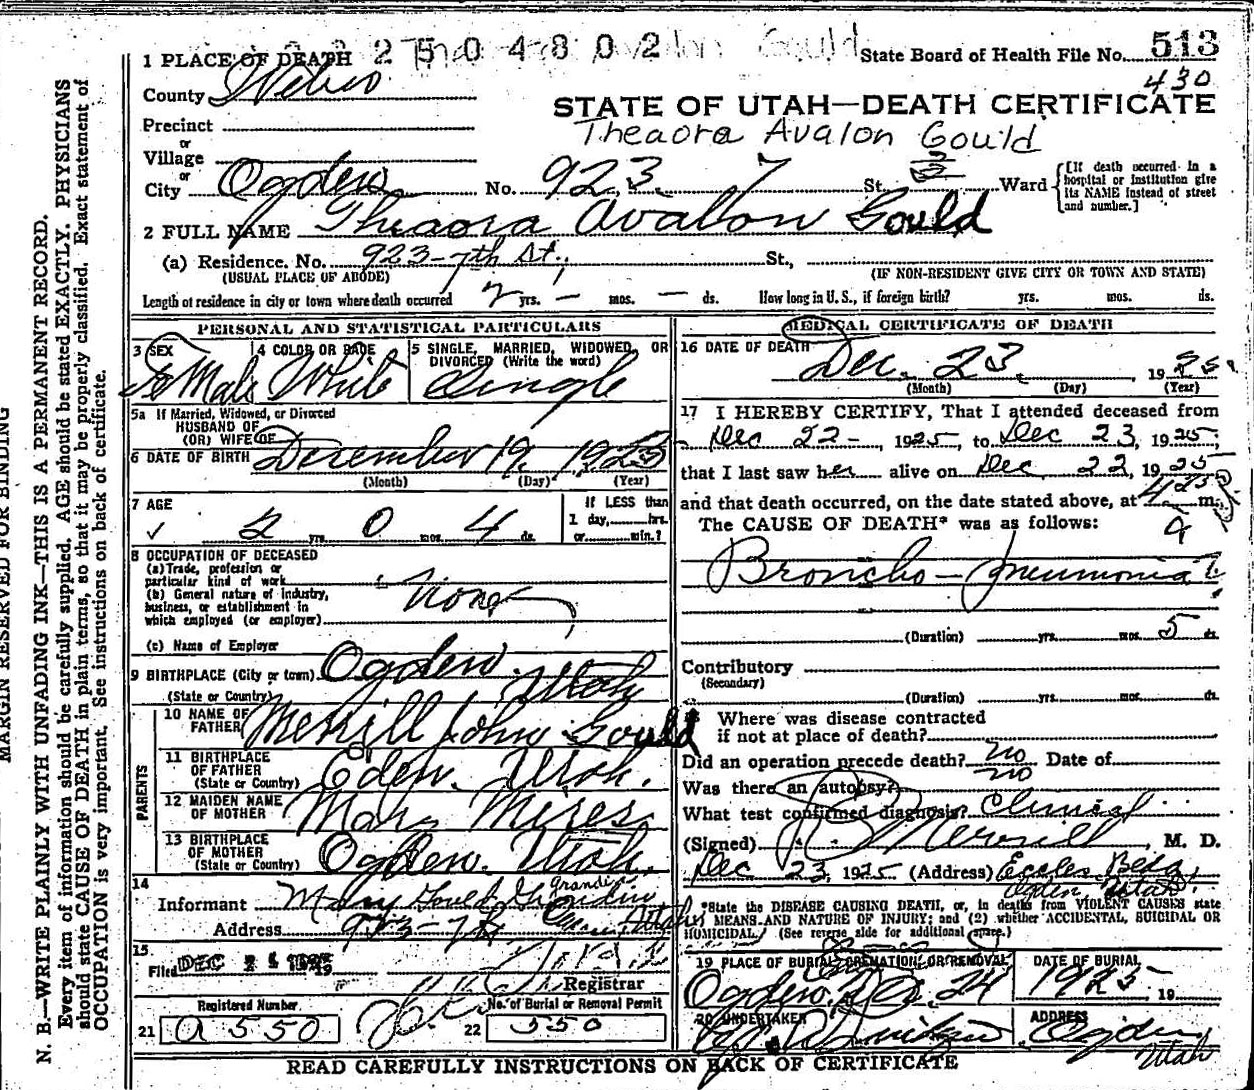 2504802 Avalon Gould
State Board of Health File No. 513
430
1 PLACE OF DEATH
County Weber
STATE OF UTAH—DEATH CERTIFICATE
Precinct
Theaora Avalon Gould
or
Village
or
City Ogden No. 923 7 St. Ward
[If death occurred in a hospital or institution give its NAME instead of street and number.]
2 FULL NAME Theaora Avalon Gould
(a) Residence. No. 923-7th St. St.,
(USUAL PLACE OF ABODE) (IF NON-RESIDENT GIVE CITY OR TOWN AND STATE)
Length of residence in city or town where death occurred 2 yrs. — mos. — ds. How long in U. S., if foreign birth? yrs. mos. ds.
PERSONAL AND STATISTICAL PARTICULARS
3 SEX 4 COLOR OR RACE 5 SINGLE, MARRIED, WIDOWED, OR DIVORCED (Write the word)
FeMale White Single
5a If Married, Widowed, or Divorced
HUSBAND OF
(OR) WIFE OF
6 DATE OF BIRTH December 19, 1923
(Month) (Day) (Year)
7 AGE If LESS than
2 yrs. 0 mos. 4 ds. 1 day, hrs. or min.?
8 OCCUPATION OF DECEASED
(a) Trade, profession or
particular kind of work
(b) General nature of industry, None
business, or establishment in
which employed (or employer)
(c) Name of Employer
9 BIRTHPLACE (City or town) Ogden
(State or Country) Utah
PARENTS
10 NAME OF FATHER Merrill John Gould
11 BIRTHPLACE OF FATHER Eden, Utah.
(State or Country)
12 MAIDEN NAME OF MOTHER Mary
13 BIRTHPLACE OF MOTHER Ogden. Utah.
(State or Country)
14
Informant Mary Gould
Address 923-7th
15
Filed DEC
Registrar
Registered Number No. of Burial or Removal Permit
21 a 550 22 550
MEDICAL CERTIFICATE OF DEATH
16 DATE OF DEATH
Dec. 23, 1925
(Month) (Day) (Year)
17 I HEREBY CERTIFY, That I attended deceased from
Dec 22-, 1925, to Dec 23, 1925,
that I last saw her alive on Dec 22, 1925
and that death occurred, on the date stated above, at 4 m.
The CAUSE OF DEATH* was as follows:
Broncho-pneumonia
(Duration) yrs. mos. 5 ds.
Contributory
(Secondary)
(Duration) yrs. mos. ds.
Where was disease contracted
if not at place of death?
Did an operation precede death? no Date of
Was there an autopsy? no
What test confirmed diagnosis? Clinical
(Signed) Merrill, M. D.
Dec 23, 1925 (Address) Eccles Bldg
Ogden, Utah.
*State the DISEASE CAUSING DEATH, or, in deaths from VIOLENT CAUSES state
MEANS AND NATURE OF INJURY; and (2) whether ACCIDENTAL, SUICIDAL OR
HOMICIDAL. (See reverse side for additional space.)
19 PLACE OF BURIAL, CREMATION, OR REMOVAL DATE OF BURIAL
Ogden 24 1925 19
20 UNDERTAKER ADDRESS
Ogden
Utah
READ CAREFULLY INSTRUCTIONS ON BACK OF CERTIFICATE
MARGIN RESERVED FOR BINDING
N. B.—WRITE PLAINLY WITH UNFADING INK—THIS IS A PERMANENT RECORD.
Every item of information should be carefully supplied. AGE should be stated EXACTLY. PHYSICIANS
should state CAUSE OF DEATH in plain terms, so that it may be properly classified. Exact statement of
OCCUPATION is very important. See instructions on back of certificate.